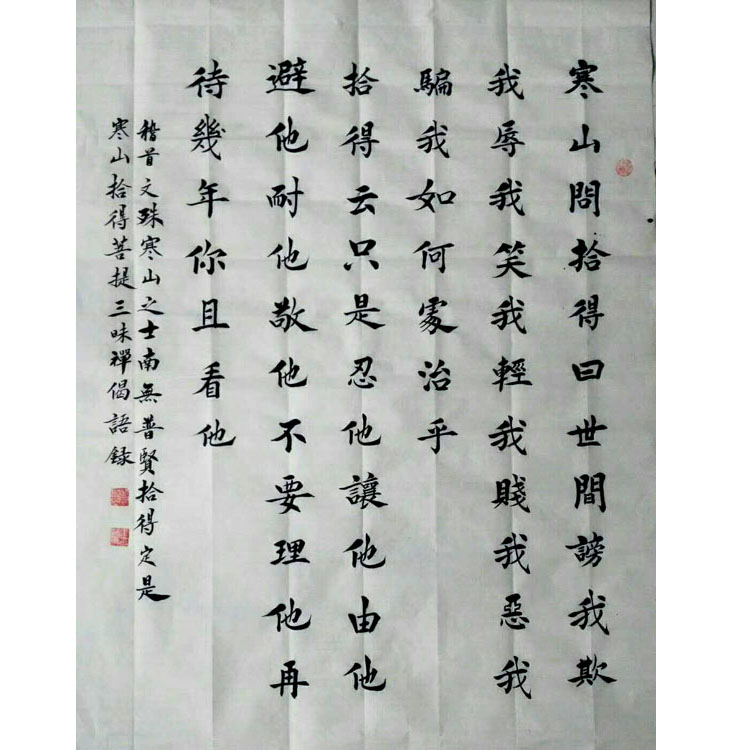 寒山問拾得曰世間謗我欺
我辱我笑我輕我賤我惡我
騙我如何處治乎
拾得云只是忍他讓他由他
避他耐他敬他不要理他再
待幾年你且看他
稽首文殊寒山之士南無普賢拾得定是
寒山拾得菩提三昧禪偈語錄